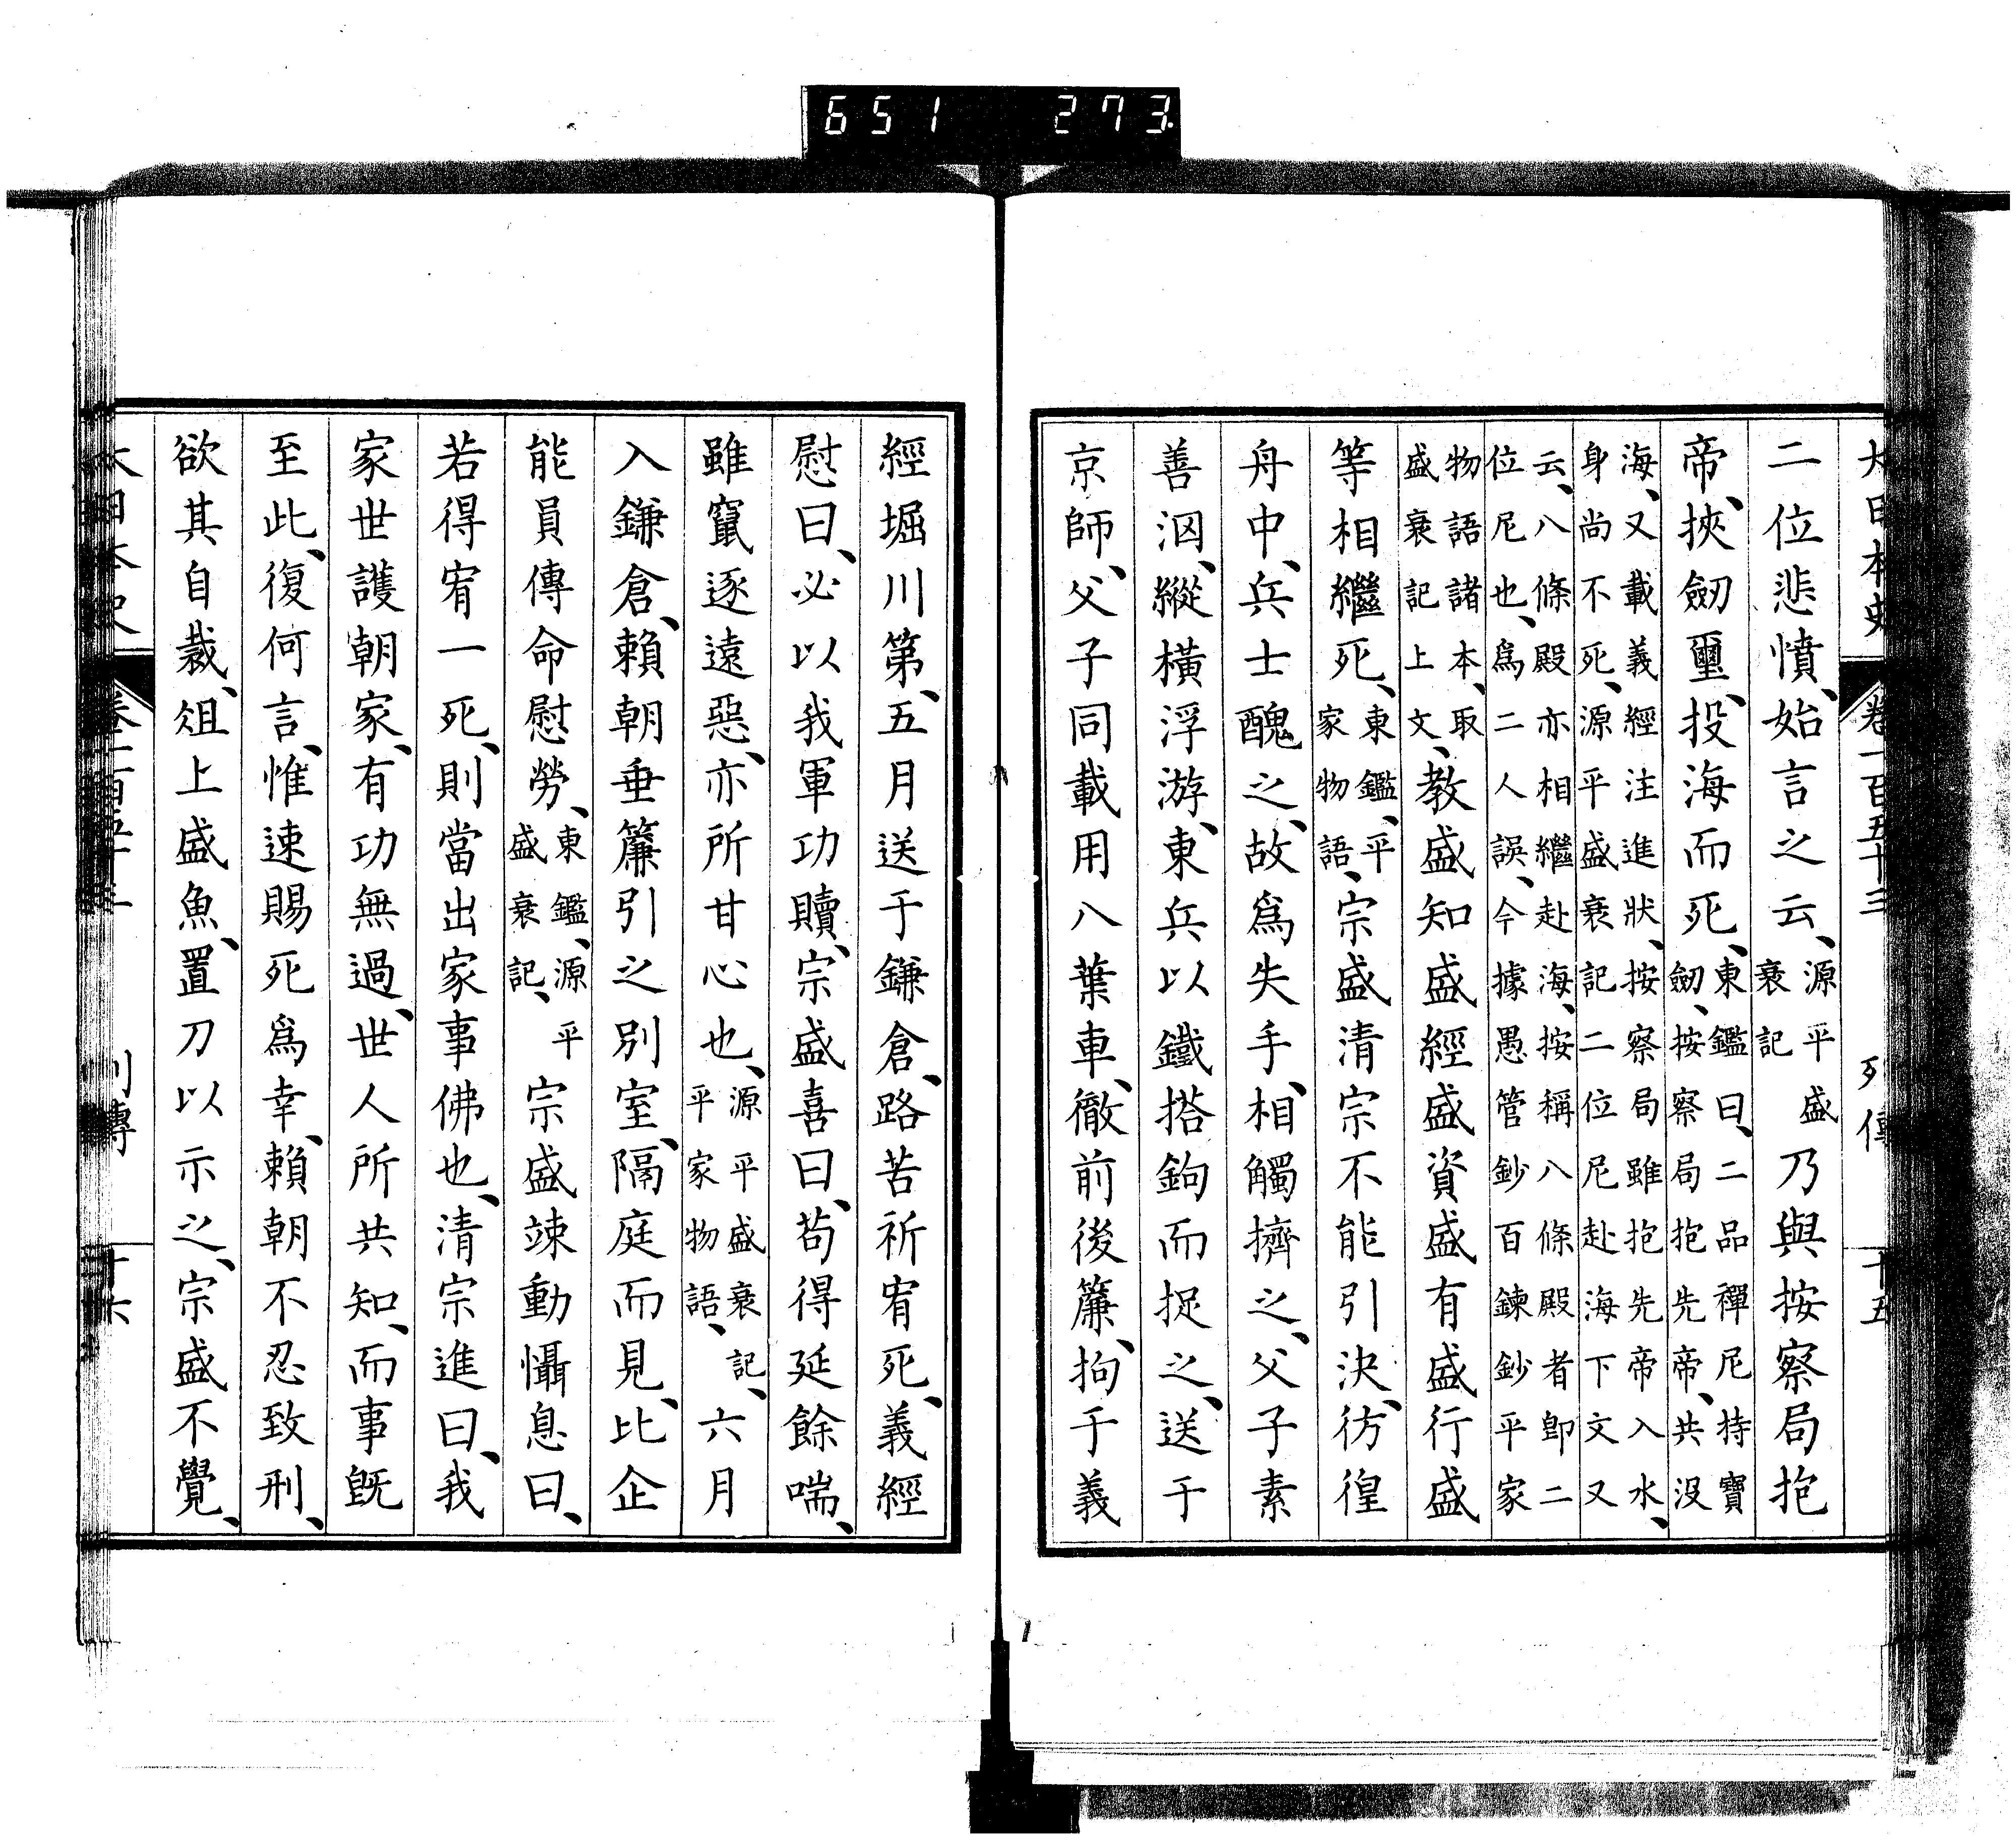 651 273
大日本史 卷一百五十三 列傳 十五
二位悲憤、始言之云、源平盛衰記 乃與按察局抱
帝、挾劒璽、投海而死、東鑑曰、二品禪尼持寶劒、按察局抱先帝、共沒
海、又載義經注進狀、按察局雖抱先帝入水、身尚不死、源平盛衰記二位尼赴海下文又
云、八條殿亦相繼赴海、按稱八條殿者卽二位尼也、爲二人誤、今據愚管鈔百鍊鈔平家
物語諸本、取盛衰記上文、教盛知盛經盛資盛有盛行盛
等相繼死、東鑑、平家物語、宗盛清宗不能引決、彷徨
舟中、兵士醜之、故爲失手、相觸擠之、父子素
善泅、縱橫浮游、東兵以鐵搭鉤而捉之、送于
京師、父子同載用八葉車、徹前後簾、拘于義
經堀川第、五月送于鎌倉、路苦祈宥死、義經
慰曰、必以我軍功贖、宗盛喜曰、苟得延餘喘、
雖竄逐遠惡、亦所甘心也、源平盛衰記、平家物語、六月
入鎌倉、賴朝垂簾引之別室、隔庭而見、比企
能員傳命慰勞、東鑑、源平盛衰記、宗盛竦動懾息曰、
若得宥一死、則當出家事佛也、清宗進曰、我
家世護朝家、有功無過、世人所共知、而事既
至此、復何言、惟速賜死爲幸、賴朝不忍致刑、
欲其自裁、俎上盛魚、置刀以示之、宗盛不覺、
大日本史 卷一百五十三 列傳 十六